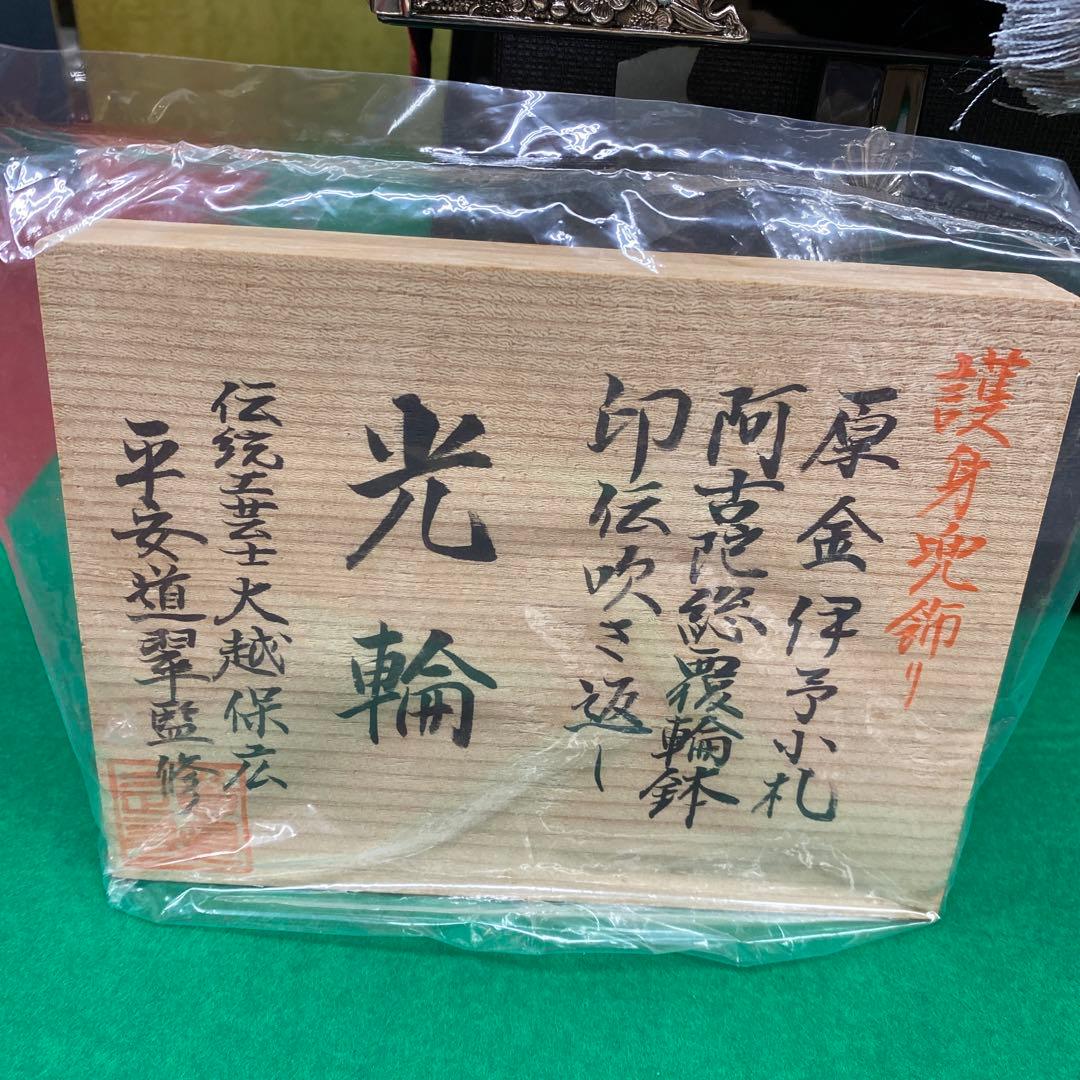 護身兜飾り
原金伊予小札
阿古陀総覆輪鉢
印伝吹き返し
光輪
伝統工芸士大越保広
平安道翠監修